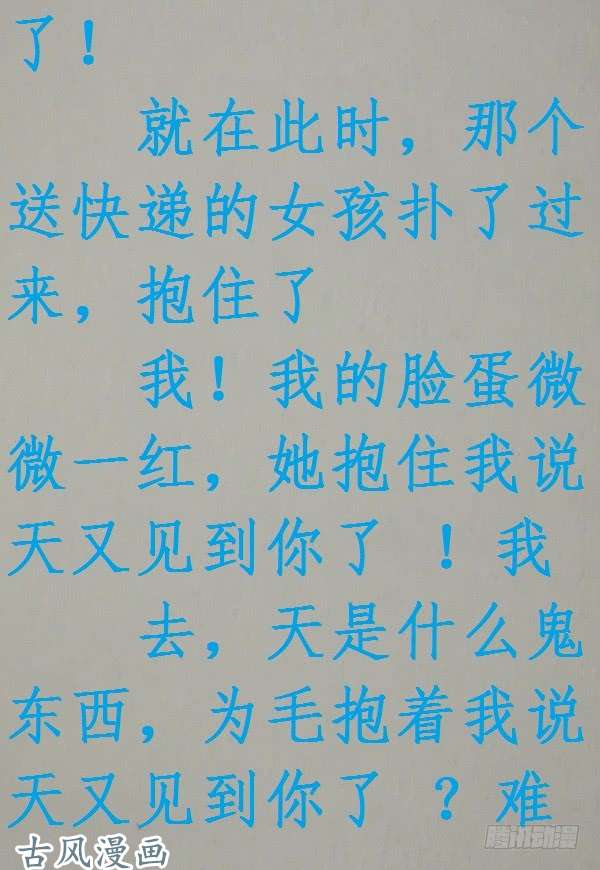 了！
就在此时，那个
送快递的女孩扑了过
来，抱住了
我！我的脸蛋微
微一红，她抱住我说
天又见到你了 ！我
去，天是什么鬼
东西，为毛抱着我说
天又见到你了 ？难
腾讯动漫
古风漫画